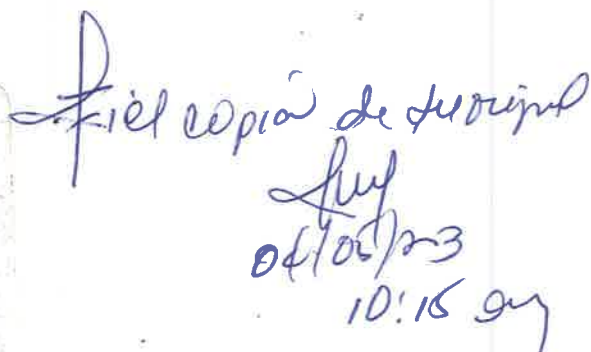 Fiel copia de su original
04/05/23
10:15 am